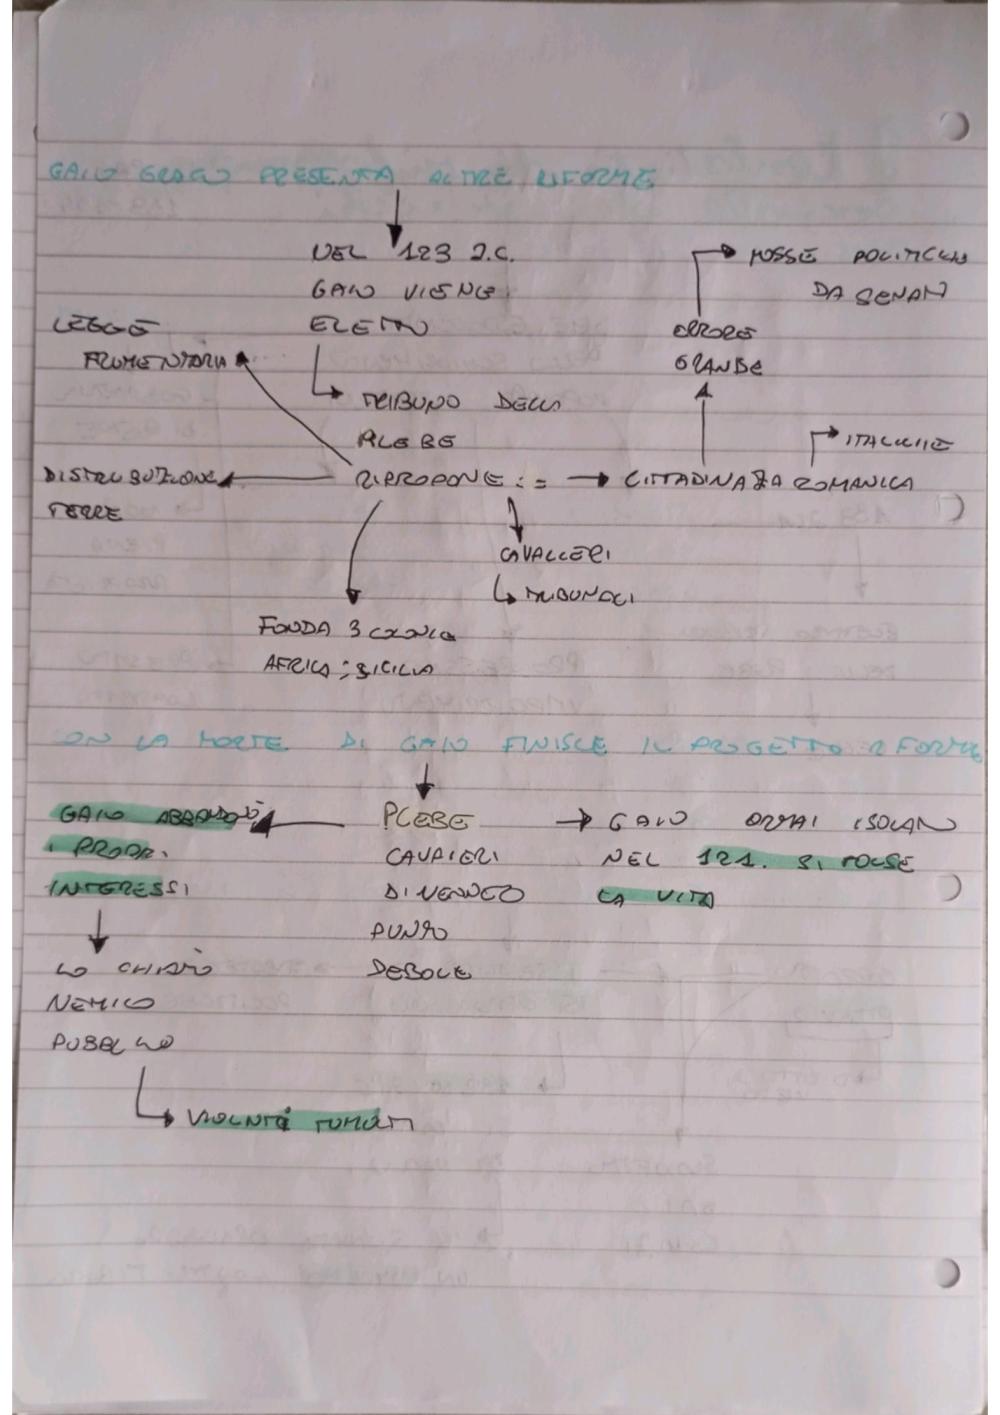 GAIO GRACO PRESENTA ALTRE RIFORME
NEL 123 a.C.
GAIO VIENE
ELETTO
TRIBUNO DELLA
PLEBE
RIPROPONE :=
LEGGE
FRUMENTARIA
DISTRIBUZIONE
TERRE
FONDA 3 COLONIE
AFRICA; SICILIA
CAVALLERI
TRIBUNALI
CITTADINAZA ROMANICA
ITALICHE
ERRORE
GRANDE
MOSSE POLITICHE
DA SENATI
ON LA MORTE DI GAIO FINISCE IL PROGETTO RIFORME
PLEBE
CAVALIERI
DIVENNERO
PUNTO
DEBOLE
GAIO ABBANDONÒ
I PROPRI
INTERESSI
LO CHIAMÒ
NEMICO
PUBBLICO
VIOLENTI TUMULTI
GAIO ORMAI ISOLATO
NEL 121. SI TOLSE
LA VITA